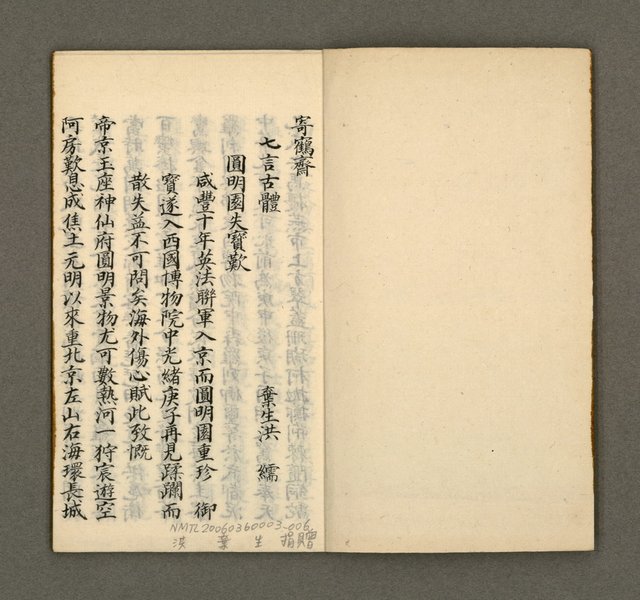 寄鶴齋
七言古體　棄生洪　繻
圓明園失寶歎
咸豐十年英法聯軍入京而圓明園重珍　御
寶遂入西國博物院中光緒庚子再見蹂躝而
散失益不可問矣海外傷心賦此致慨
帝京玉座神仙府圓明景物尤可數熱河一狩宸遊空
阿房歎息成焦土元明以來重北京左山右海環長城
NMTL20060360003-006
洪　棄　生　捐贈